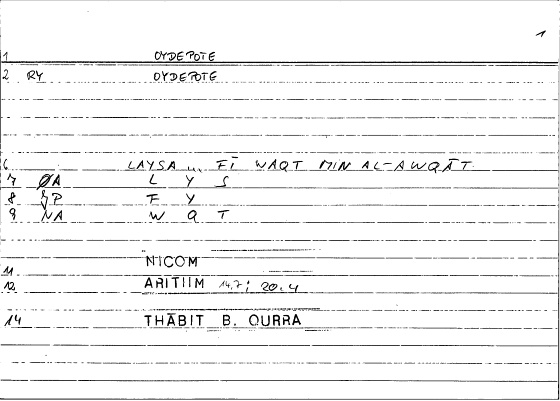 1
1 OYDEPOTE
2 RY OYDEPOTE
6 LAYSA ... FĪ WAQT MIN AL-AWQĀT.
7 ØA L Y S
8 ȝP F Y
9 NA W Q T
11 NICOM
12 ARITIIM 14.7; 20.4
14 THĀBIT B. QURRA